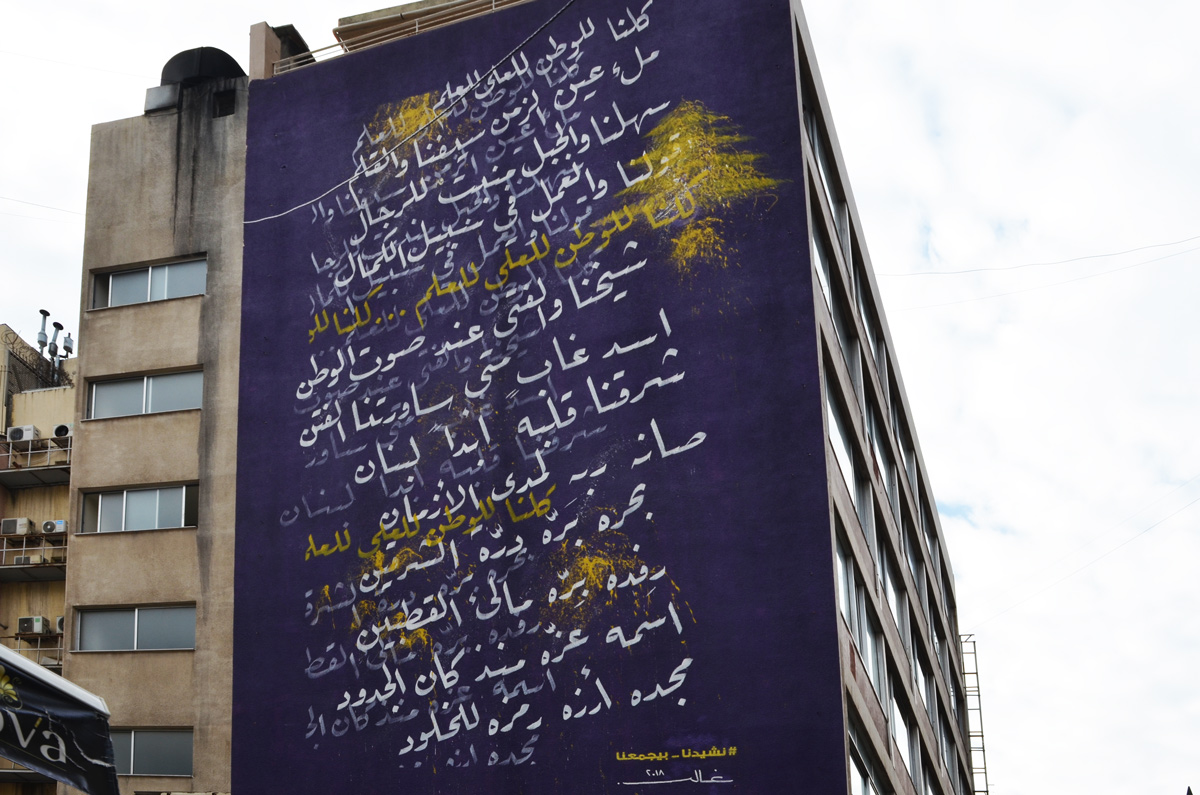 كلنا للوطن للعلى للعلم
ملء عين الزمن سيفنا والقلم
سهلنا والجبل منبت للرجال
قولنا والعمل في سبيل الكمال
كلنا للوطن للعلى للعلم ... كلنا للو
شيخنا والفتى عند صوت الوطن
اسد غاب متى ساورتنا الفتن
شرقنا قلبه ابداً لبنان
صانه ربه لمدى الازمان
كلنا للوطن للعلى للعلم
بحره بَرّه درّه الشرقين
رفده بِرّه مالئ القطبين
اسمه عزّه منذ كان الجدود
مجده أرزه رمزه للخلود
#نشيدنا_بيجمعنا
غالب
٢٠١٨
ova